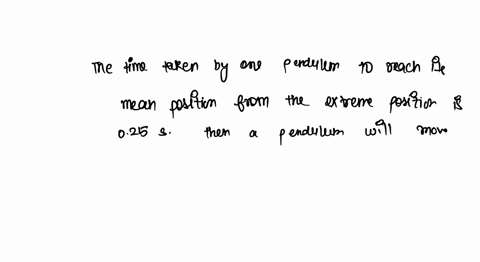 The time taken by one pendulum to reach the
mean position from the extreme position is
0.25 s. then a pendulum will move